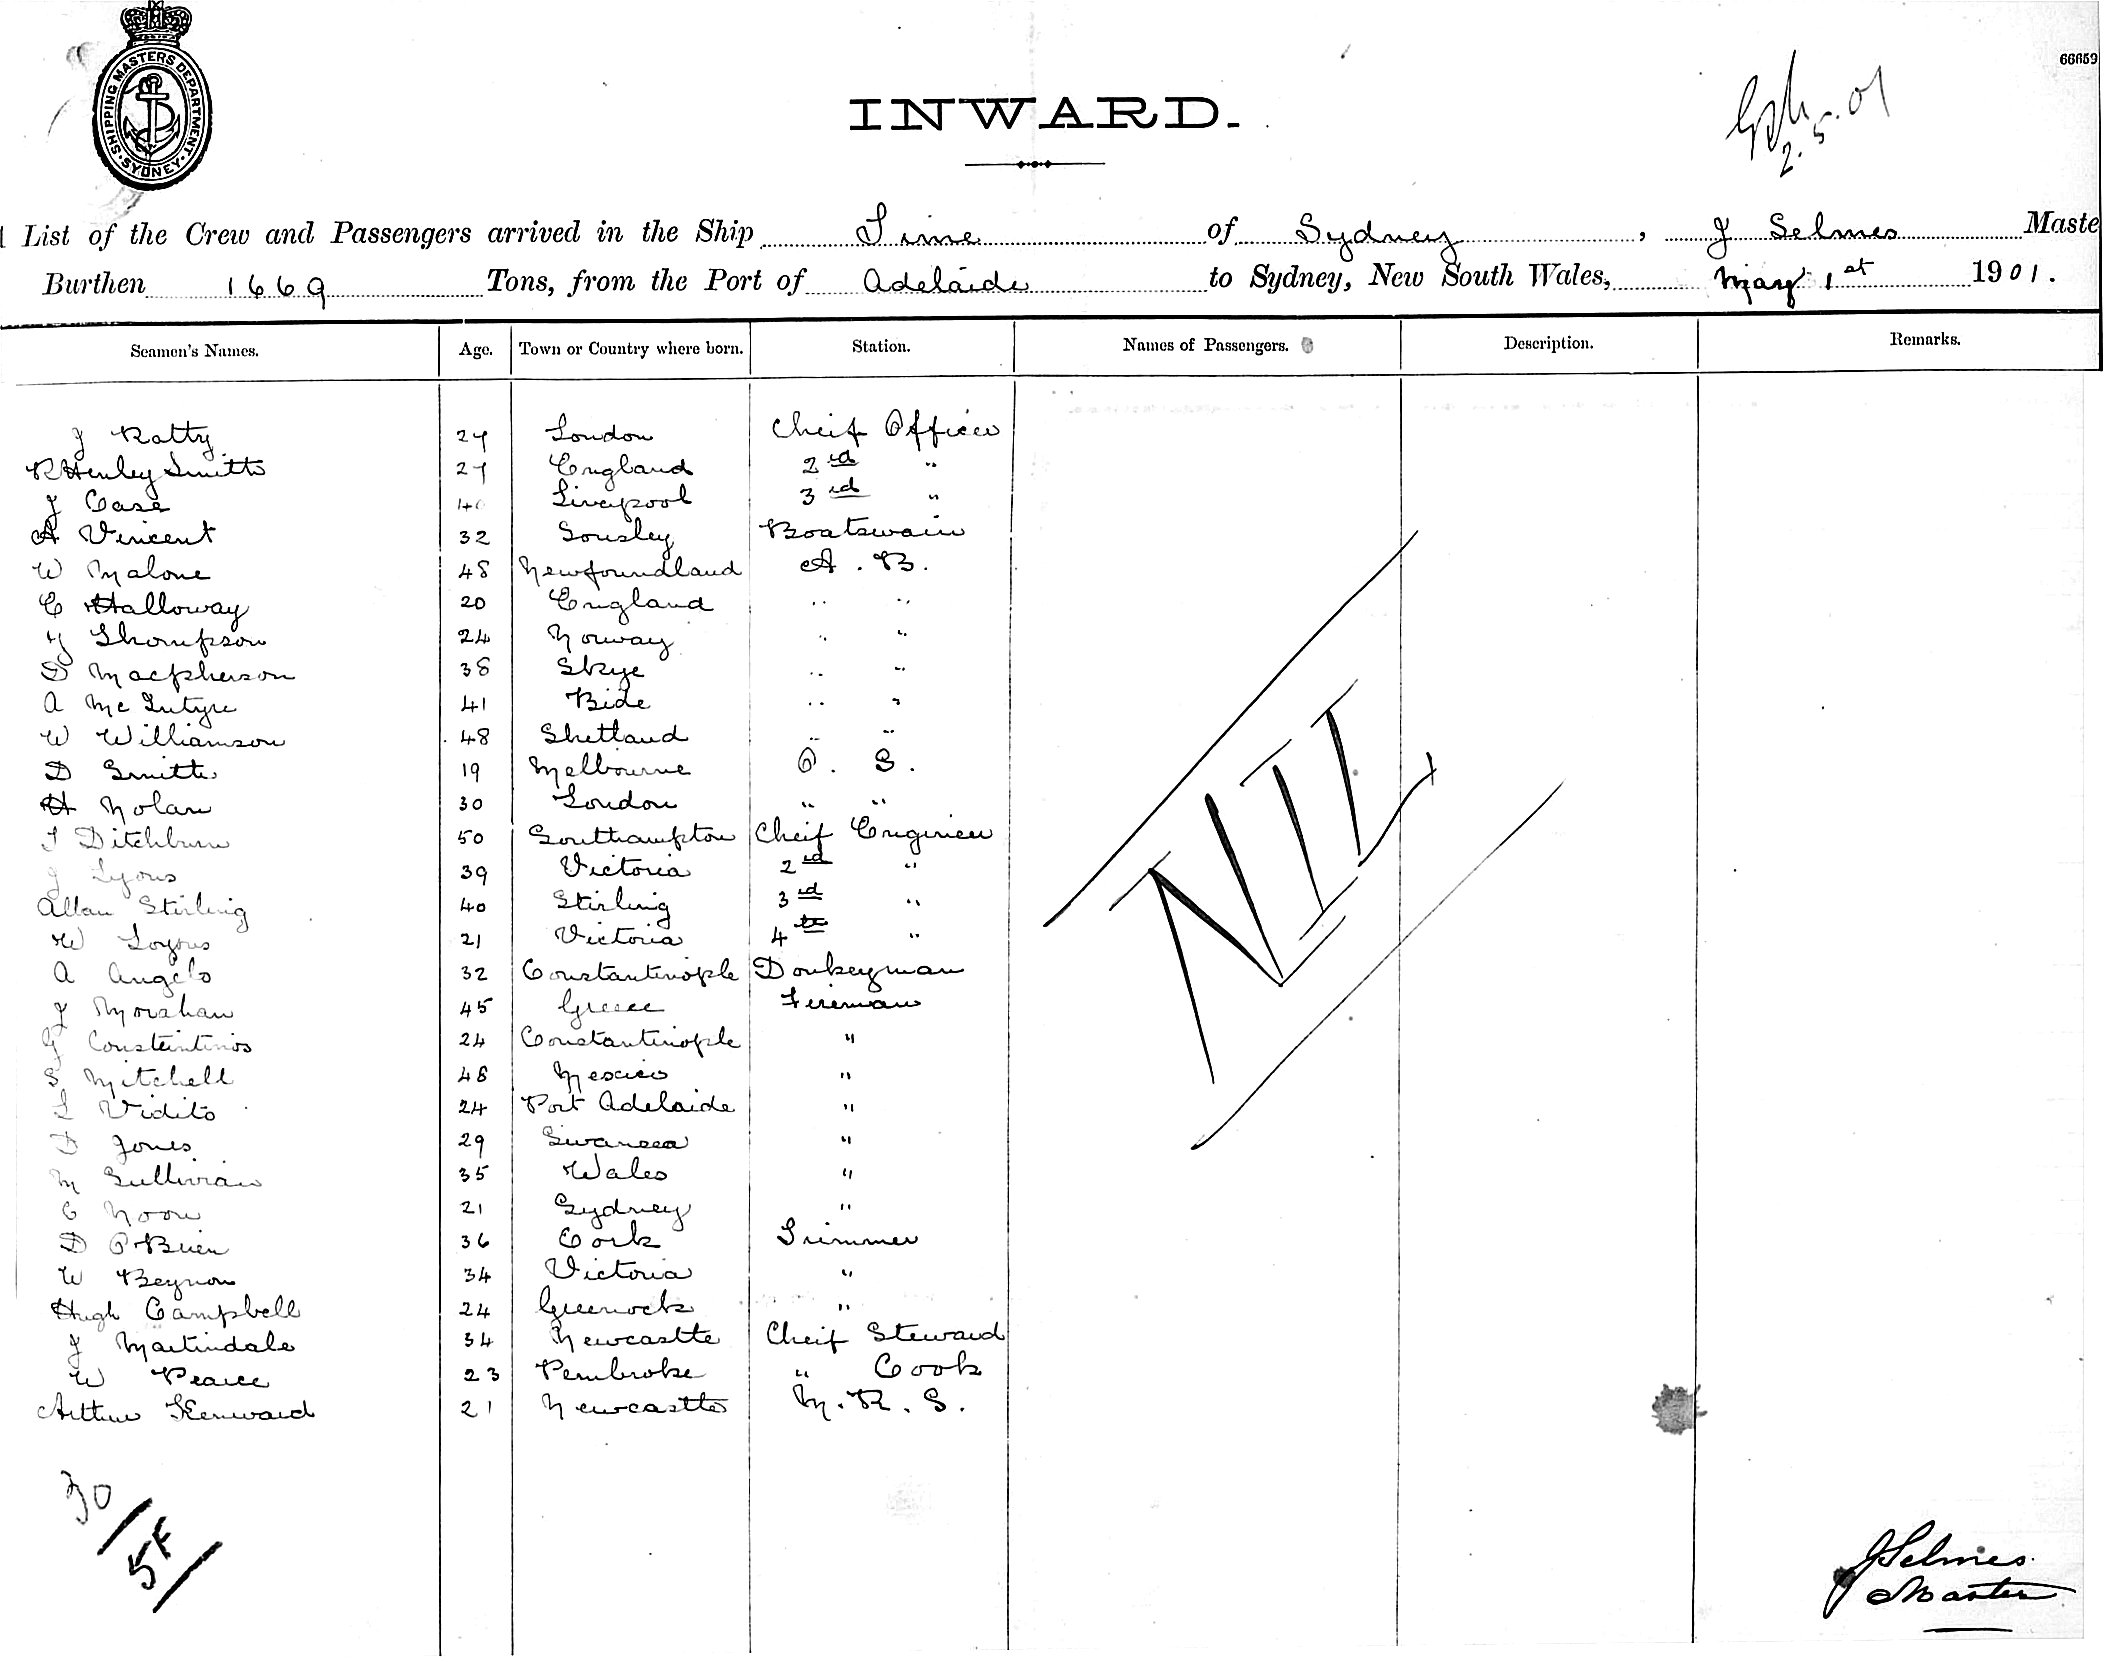 SHIPPING MASTERS DEPARTMENT. SYDNEY.
66659
INWARD.
2.5.01
List of the Crew and Passengers arrived in the Ship Time of Sydney, J Selmes Maste
Burthen 1669 Tons, from the Port of Adelaide to Sydney, New South Wales, May 1st 1901.
Seamen's Names. Age. Town or Country where born. Station. Names of Passengers. Description. Remarks.
J Ratty 27 London Cheif Officer
R Henley Smith 27 England 2nd "
J Case 40 Liverpool 3rd "
A Vincent 32 Boatswain
W Malone 48 Newfoundland A. B.
C Halloway 20 England " "
Thompson 24 Norway " "
D Macpherson 38 Skye " "
A McIntyre 41 Bide " "
W Williamson 48 Shetland " "
D Smith 19 Melbourne O. S.
H Nolan 30 London " "
T Ditchburn 50 Southampton Cheif Engineer
J Lyons 39 Victoria 2nd "
Allan Stirling 40 Stirling 3rd "
W Loyous 21 Victoria 4th "
A Angelo 32 Constantinople Donkeyman
J Morahan 45 Greece Fireman
G Constentinos 24 Constantinople "
S Mitchell 48 Mexico "
L Vidito 24 Port Adelaide "
D Jones 29 Swansea "
M Sullivian 35 Wales "
C Noon 21 Sydney "
D O'Brien 36 Cork Trimmer
W Beynon 34 Victoria "
Hugh Campbell 24 Greenock "
J Martindale 34 Newcastle Cheif Steward
W Pearce 23 Pembroke " Cook
Arthur Kenward 21 Newcastle M. R. S.
NIL
30
5F
J Selmes
Master